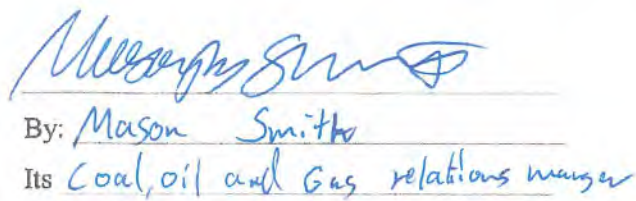 By: Mason Smith
Its Coal, oil and Gas relations manger